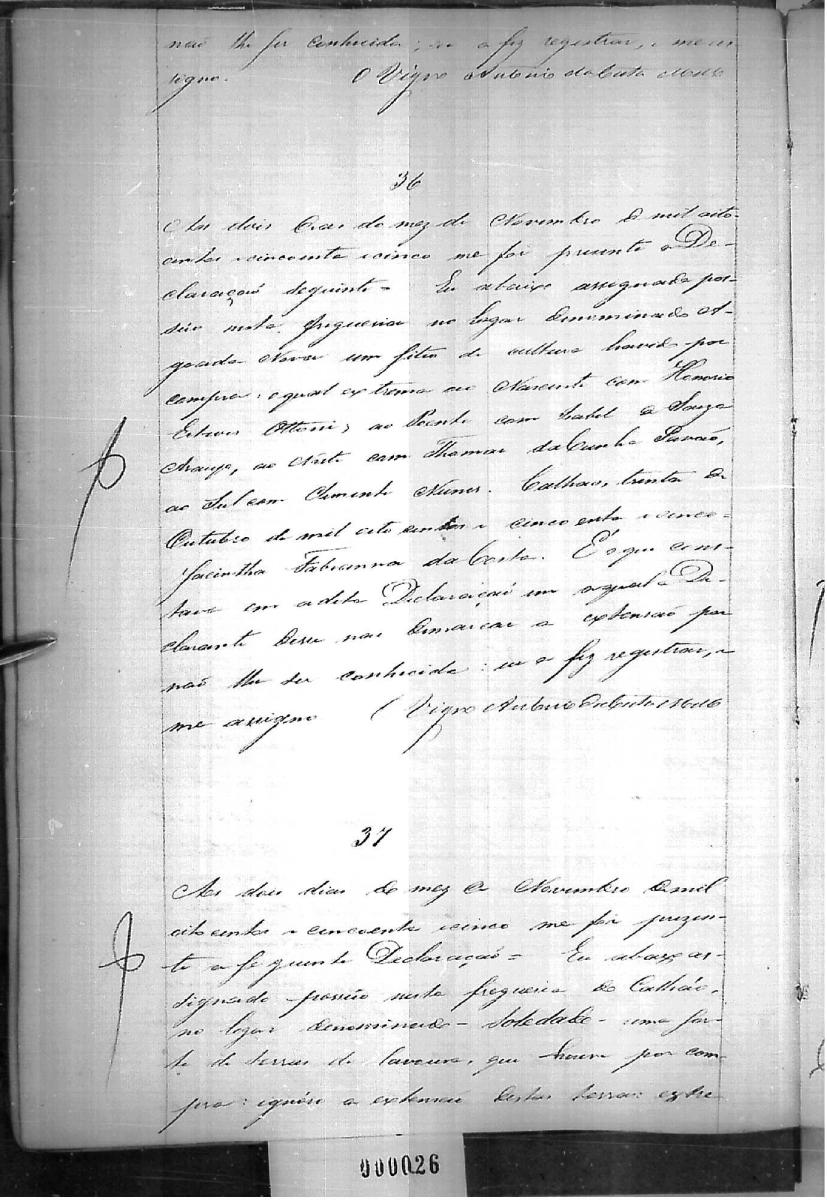 não lhe ser conhecida; eu a fiz registrar, e me as
signo. O Vigro Antonio da Costa Mello
36
Aos dois dias do mez de Novembro de mil oito
centos e cincoenta e cinco me foi presente a De-
claração seguinte = Eu abaixo assignada pos-
súo nesta freguezia no lugar denominado A-
goada Nova um sitio de cultura havido por
compra: o qual extrema ao Nascente com Honorio
Esteves Ottoni; ao Poente com Isabel de Souza
Araujo, ao Norte com Thomaz da Cunha Pavão,
ao Sul com Clemente Nunes. Calháo, trinta de
Outubro de mil oito centos e cincoenta e cinco -
Jacintha Fabianna da Costa. É o que cons-
tava em a dita Declaração em a qual a De-
clarante disse não demarcar a extensão por
não lhe ser conhecida: eu a fiz registrar, e
me assigno O Vigro Antonio da Costa Mello
37
Aos dois dias do mez de Novembro de mil
oito centos e cincoenta e cinco me foi prezen-
te a seguinte Declaração = Eu abaixo as-
signado possúo nesta freguezia do Calháo,
no logar denominado - Soledade - uma sor-
te de terras de lavoura, que houve por com-
pra: ignóro a extensão destas terras: extre
000026